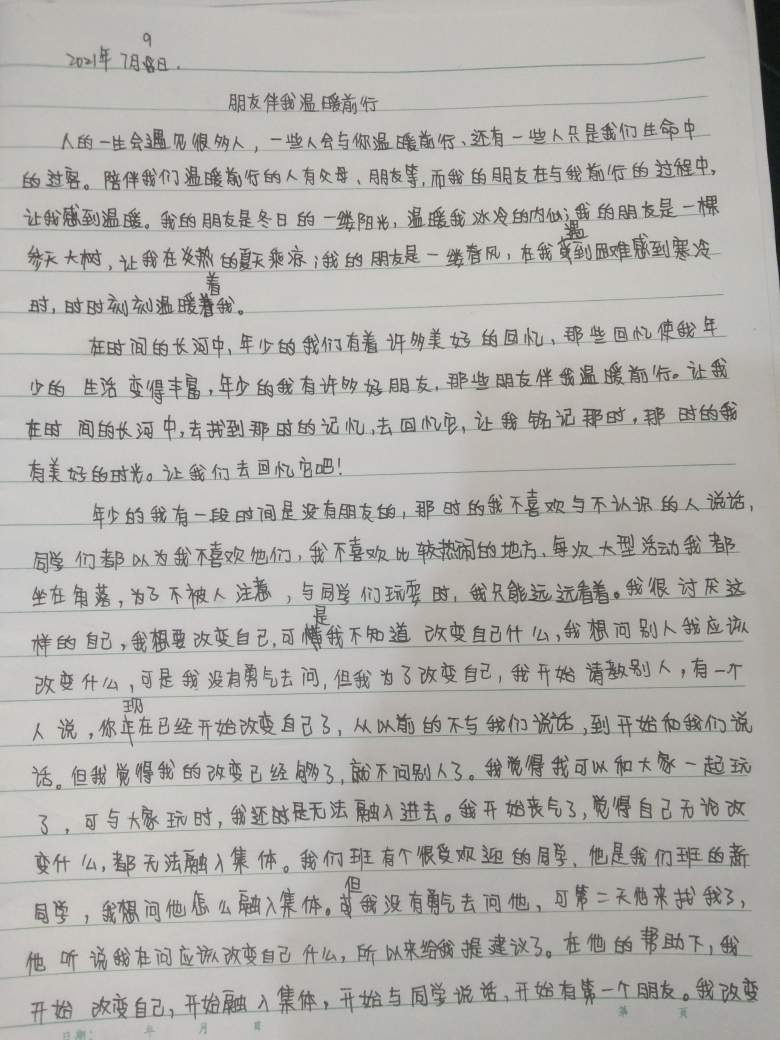 2021年7月9日.
朋友伴我温暖前行
人的一生会遇见很多人，一些人会与你温暖前行、还有一些人只是我们生命中
的过客。陪伴我们温暖前行的人有父母、朋友等,而我的朋友在与我前行的过程中,
让我感到温暖。我的朋友是冬日的一缕阳光，温暖我冰冷的内心;我的朋友是一棵
参天大树，让我在炎热的夏天乘凉;我的朋友是一缕春风，在我遇到困难感到寒冷
时，时时刻刻温暖着我。
在时间的长河中,年少的我们有着许多美好的回忆、那些回忆使我年
少的生活变得丰富，年少的我有许多好朋友，那些朋友伴我温暖前行。让我
在时间的长河中,去找到那时的记忆,去回忆它，让我铭记那时，那时的我
有美好的时光。让我们去回忆它吧!
年少的我有一段时间是没有朋友的，那时的我不喜欢与不认识的人说话，
同学们都以为我不喜欢他们，我不喜欢比较热闹的地方、每次大型活动我都
坐在角落，为了不被人注意，与同学们玩耍时，我只能远远看着。我很讨厌这
样的自己，我想要改变自己,可是我不知道改变自己什么,我想问别人我应该
改变什么,可是我没有勇气去问,但我为了改变自己，我开始请教别人，有一个
人说，你现在已经开始改变自己了，从以前的不与我们说话,到开始和我们说
话。但我觉得我的改变已经够了,就不问别人了。我觉得我可以和大家一起玩
了，可与大家玩时，我还时是无法融入进去。我开始丧气了,觉得自己无论改
变什么,都无法融入集体。我们班有个很受欢迎的同学，他是我们班的新
同学，我想问他怎么融入集体。但我没有勇气去问他，可第二天他来找我了，
他听说我在问应该改变自己什么，所以来给我提建议了。在他的帮助下，我
开始改变自己，开始融入集体，开始与同学说话、开始有第一个朋友。我改变
日期： 年 月 日 第 页